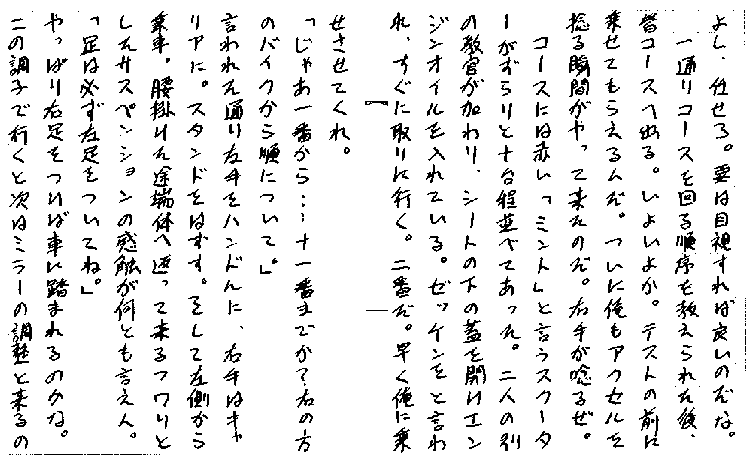 よし、任せろ。要は目視すれば良いのだな。
一通りコースを回る順序を教えられた後、
営コースへ出る。いよいよか。テストの前に
乗せてもらえるんだ。ついに俺もアクセルを
捻る瞬間がやって来たのだ。右手が唸るぜ。
コースには赤い「ミント」と言うスクータ
ーがずらりと十台程並べてあった。二人の別
の教官が加わり、シートの下の蓋を開けエン
ジンオイルを入れている。ゼッケンをと言わ
れ、すぐに取りに行く。二番だ。早く俺に乗
せさせてくれ。
「じゃあ一番から…十一番までか？右の方
のバイクから順について。」
言われた通り左手をハンドルに、右手はキャ
リアに。スタンドをはずす。そして左側から
乗車。腰掛けた途端体へ返って来るフワリと
したサスペンションの感触が何とも言えん。
「足は必ず左足をついてね。」
やっぱり右足をつけば車に踏まれるのかな。
この調子で行くと次はミラーの調整と来るの